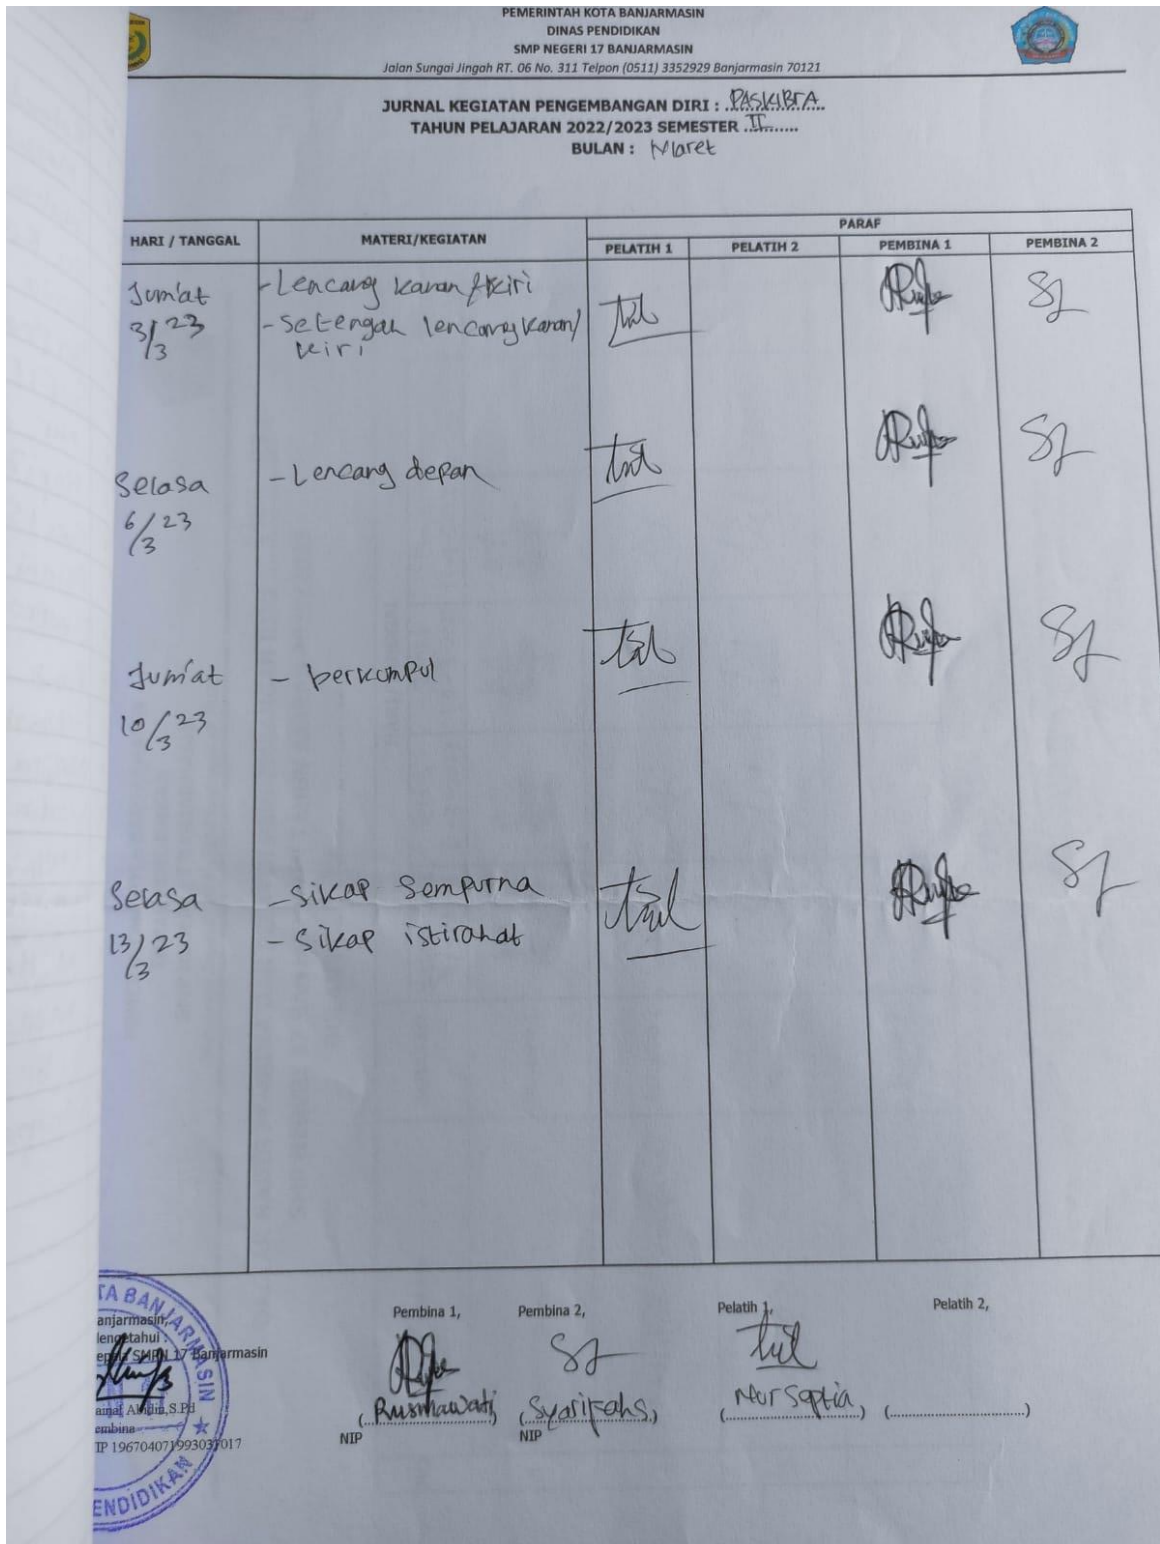 PEMERINTAH KOTA BANJARMASIN
DINAS PENDIDIKAN
SMP NEGERI 17 BANJARMASIN
Jalan Sungai Jingah RT. 06 No. 311 Telpon (0511) 3352929 Banjarmasin 70121
JURNAL KEGIATAN PENGEMBANGAN DIRI : PASKIBRA
TAHUN PELAJARAN 2022/2023 SEMESTER II
BULAN : Maret
HARI / TANGGAL MATERI/KEGIATAN PARAF
PELATIH 1 PELATIH 2 PEMBINA 1 PEMBINA 2
Jum'at - Lencang kanan / kiri
3/3 23 - Setengah lencang kanan/
kiri
Selasa - Lencang depan
6/3 23
Jum'at - berkumpul
10/3 23
Selasa - Sikap Sempurna
13/3 23 - Sikap istirahat
TA BANJARMASIN
anjarmasin,
engetahui :
epala SMPN 17 Banjarmasin
ainal Abidin,S.Pd
embina
IP 196704071993031017
ENDIDIKAN
Pembina 1, Pembina 2, Pelatih 1, Pelatih 2,
(Rusmawati) (Syarifah s.) (Nur Septia) (....................)
NIP NIP